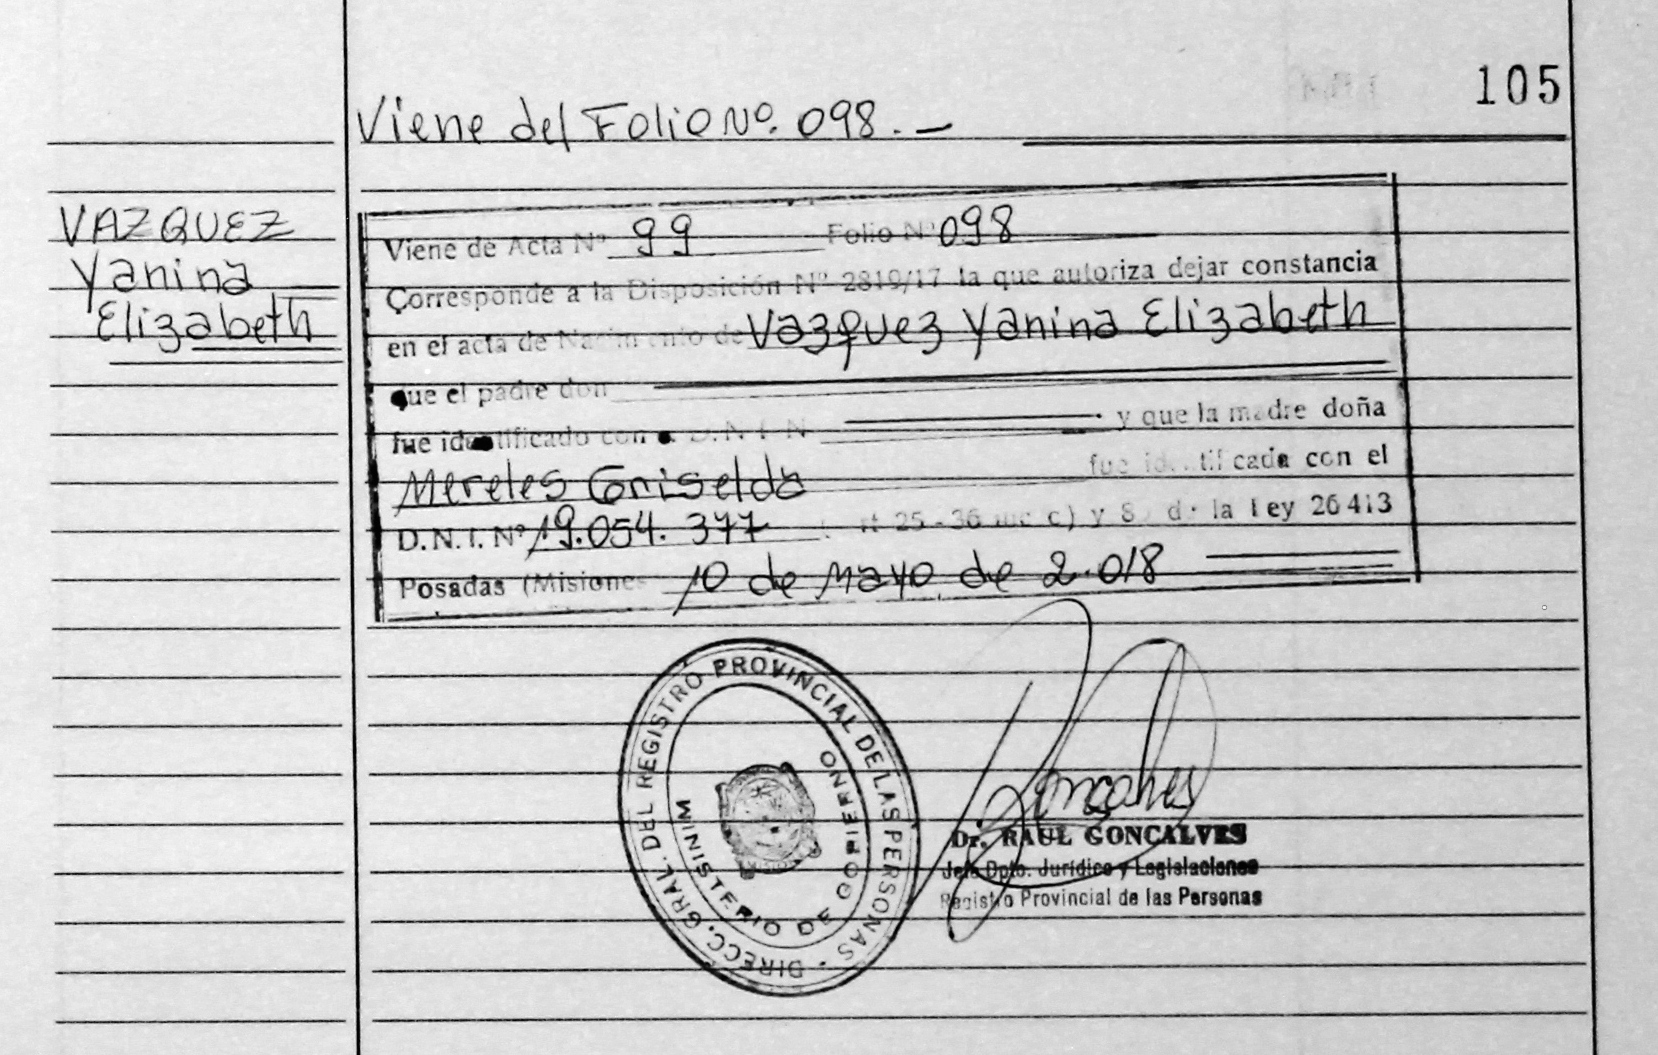 105
Viene del Folio Nº. 098. —
VAZQUEZ
Yanina
Elizabeth
Viene de Acta Nº 99 Folio Nº 098
Corresponde a la Disposición Nº 2819/17 la que autoriza dejar constancia
en el acta de Nacimiento de Vazquez Yanina Elizabeth
que el padre don
fue identificado con D.N.I. N y que la madre doña
Mereles Griselda fue identificada con el
D.N.I. Nº 19.054.377 rt 25 - 36 inc c) y 8 de la Ley 26413
Posadas (Misiones 10 de Mayo de 2.018
DIRECC. GRAL. DEL REGISTRO PROVINCIAL DE LAS PERSONAS
MINISTERIO DE GOBIERNO
Goncalves
Dr. RAUL GONCALVES
Jefe Dpto. Jurídico y Legislaciones
Registro Provincial de las Personas